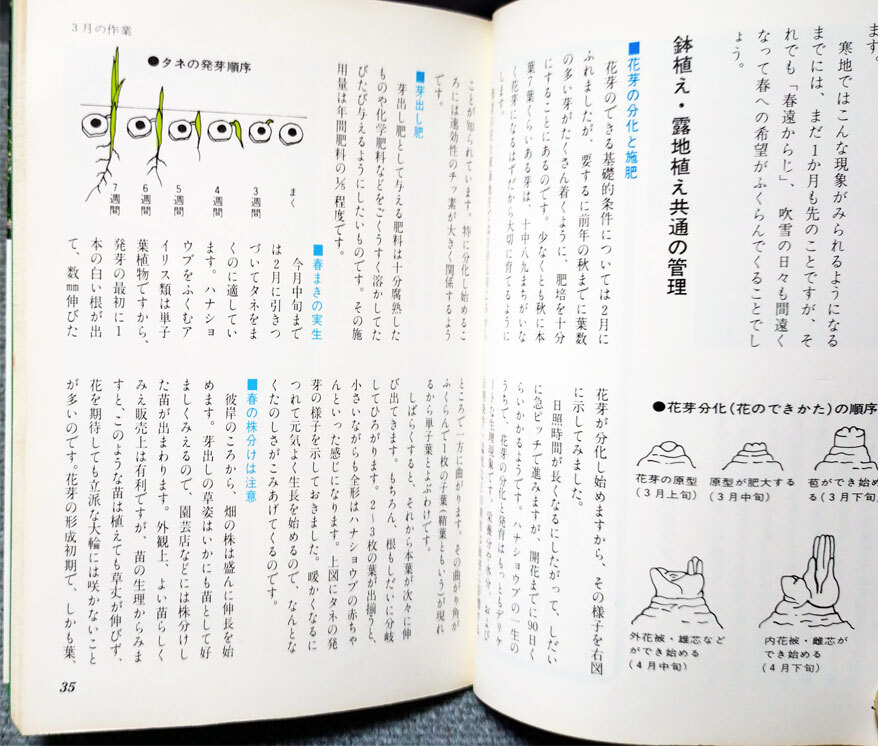 ます。
寒地ではこんな現象がみられるようになる
までには、まだ1か月も先のことですが、そ
れでも「春遠からじ」、吹雪の日々も間遠く
なって春への希望がふくらんでくることでし
ょう。
鉢植え・露地植え共通の管理
■花芽の分化と施肥
花芽のできる基礎的条件については2月に
ふれましたが、要するに前年の秋までに葉数
の多い芽がたくさん着くように、肥培を十分
にすることにあるのです。少なくとも秋に本
葉7葉くらいある芽は、十中八九まちがいな
く花芽になるはずだから大切に育てるように
します。
●花芽分化(花のできかた)の順序
花芽の原型
(3月上旬)
原型が肥大する
(3月中旬)
苞ができ始め
る(3月下旬)
外花被・雄芯など
ができ始める
(4月中旬)
内花被・雌芯が
でき始める
(4月下旬)
花芽が分化し始めますから、その様子を右図
に示してみました。
日照時間が長くなるにしたがって、しだい
に急ピッチで進みますが、開花までに90日く
らいかかるようです。ハナショウブの一生の
うちで、花芽の分化と発育はもっともデリケ
ートな生理現象です。栄養分や水分、および
3月の作業
●タネの発芽順序
まく
3週間
4週間
5週間
6週間
7週間
ことが知られています。特に分化し始めるこ
ろには速効性のチッ素が大きく関係するよう
です。
■芽出し肥
芽出し肥として与える肥料は十分腐熟した
ものや化学肥料などをごくうすく溶かしてた
びたび与えるようにしたいものです。その施
用量は年間肥料の⅕程度です。
■春まきの実生
今月中旬まで
は2月に引きつ
づいてタネをま
くのに適してい
ます。ハナショ
ウブをふくむア
イリス類は単子
葉植物ですから、
発芽の最初に1
本の白い根が出
て、数mm伸びた
ところで一方に曲がります。その曲がり角が
ふくらんで1枚の子葉(鞘葉ともいう)が現れ
るから単子葉とよぶわけです。
しばらくすると、それから本葉が次々に伸
び出てきます。もちろん、根もしだいに分岐
してひろがります。2〜3枚の葉が出揃うと、
小さいながらも全形はハナショウブの赤ちゃ
んといった感じになります。上図にタネの発
芽の様子を示しておきました。暖かくなるに
つれて元気よく生長を始めるので、なんとな
くたのしさがこみあげてくるのです。
■春の株分けは注意
彼岸のころから、畑の株は盛んに伸長を始
めます。芽出しの草姿はいかにも苗として好
ましくみえるので、園芸店などには株分けし
た苗が出まわります。外観上、よい苗らしく
みえ販売上は有利ですが、苗の生理からみま
すと、このような苗は植えても草丈が伸びず、
花を期待しても立派な大輪には咲かないこと
が多いのです。花芽の形成初期で、しかも葉、
35